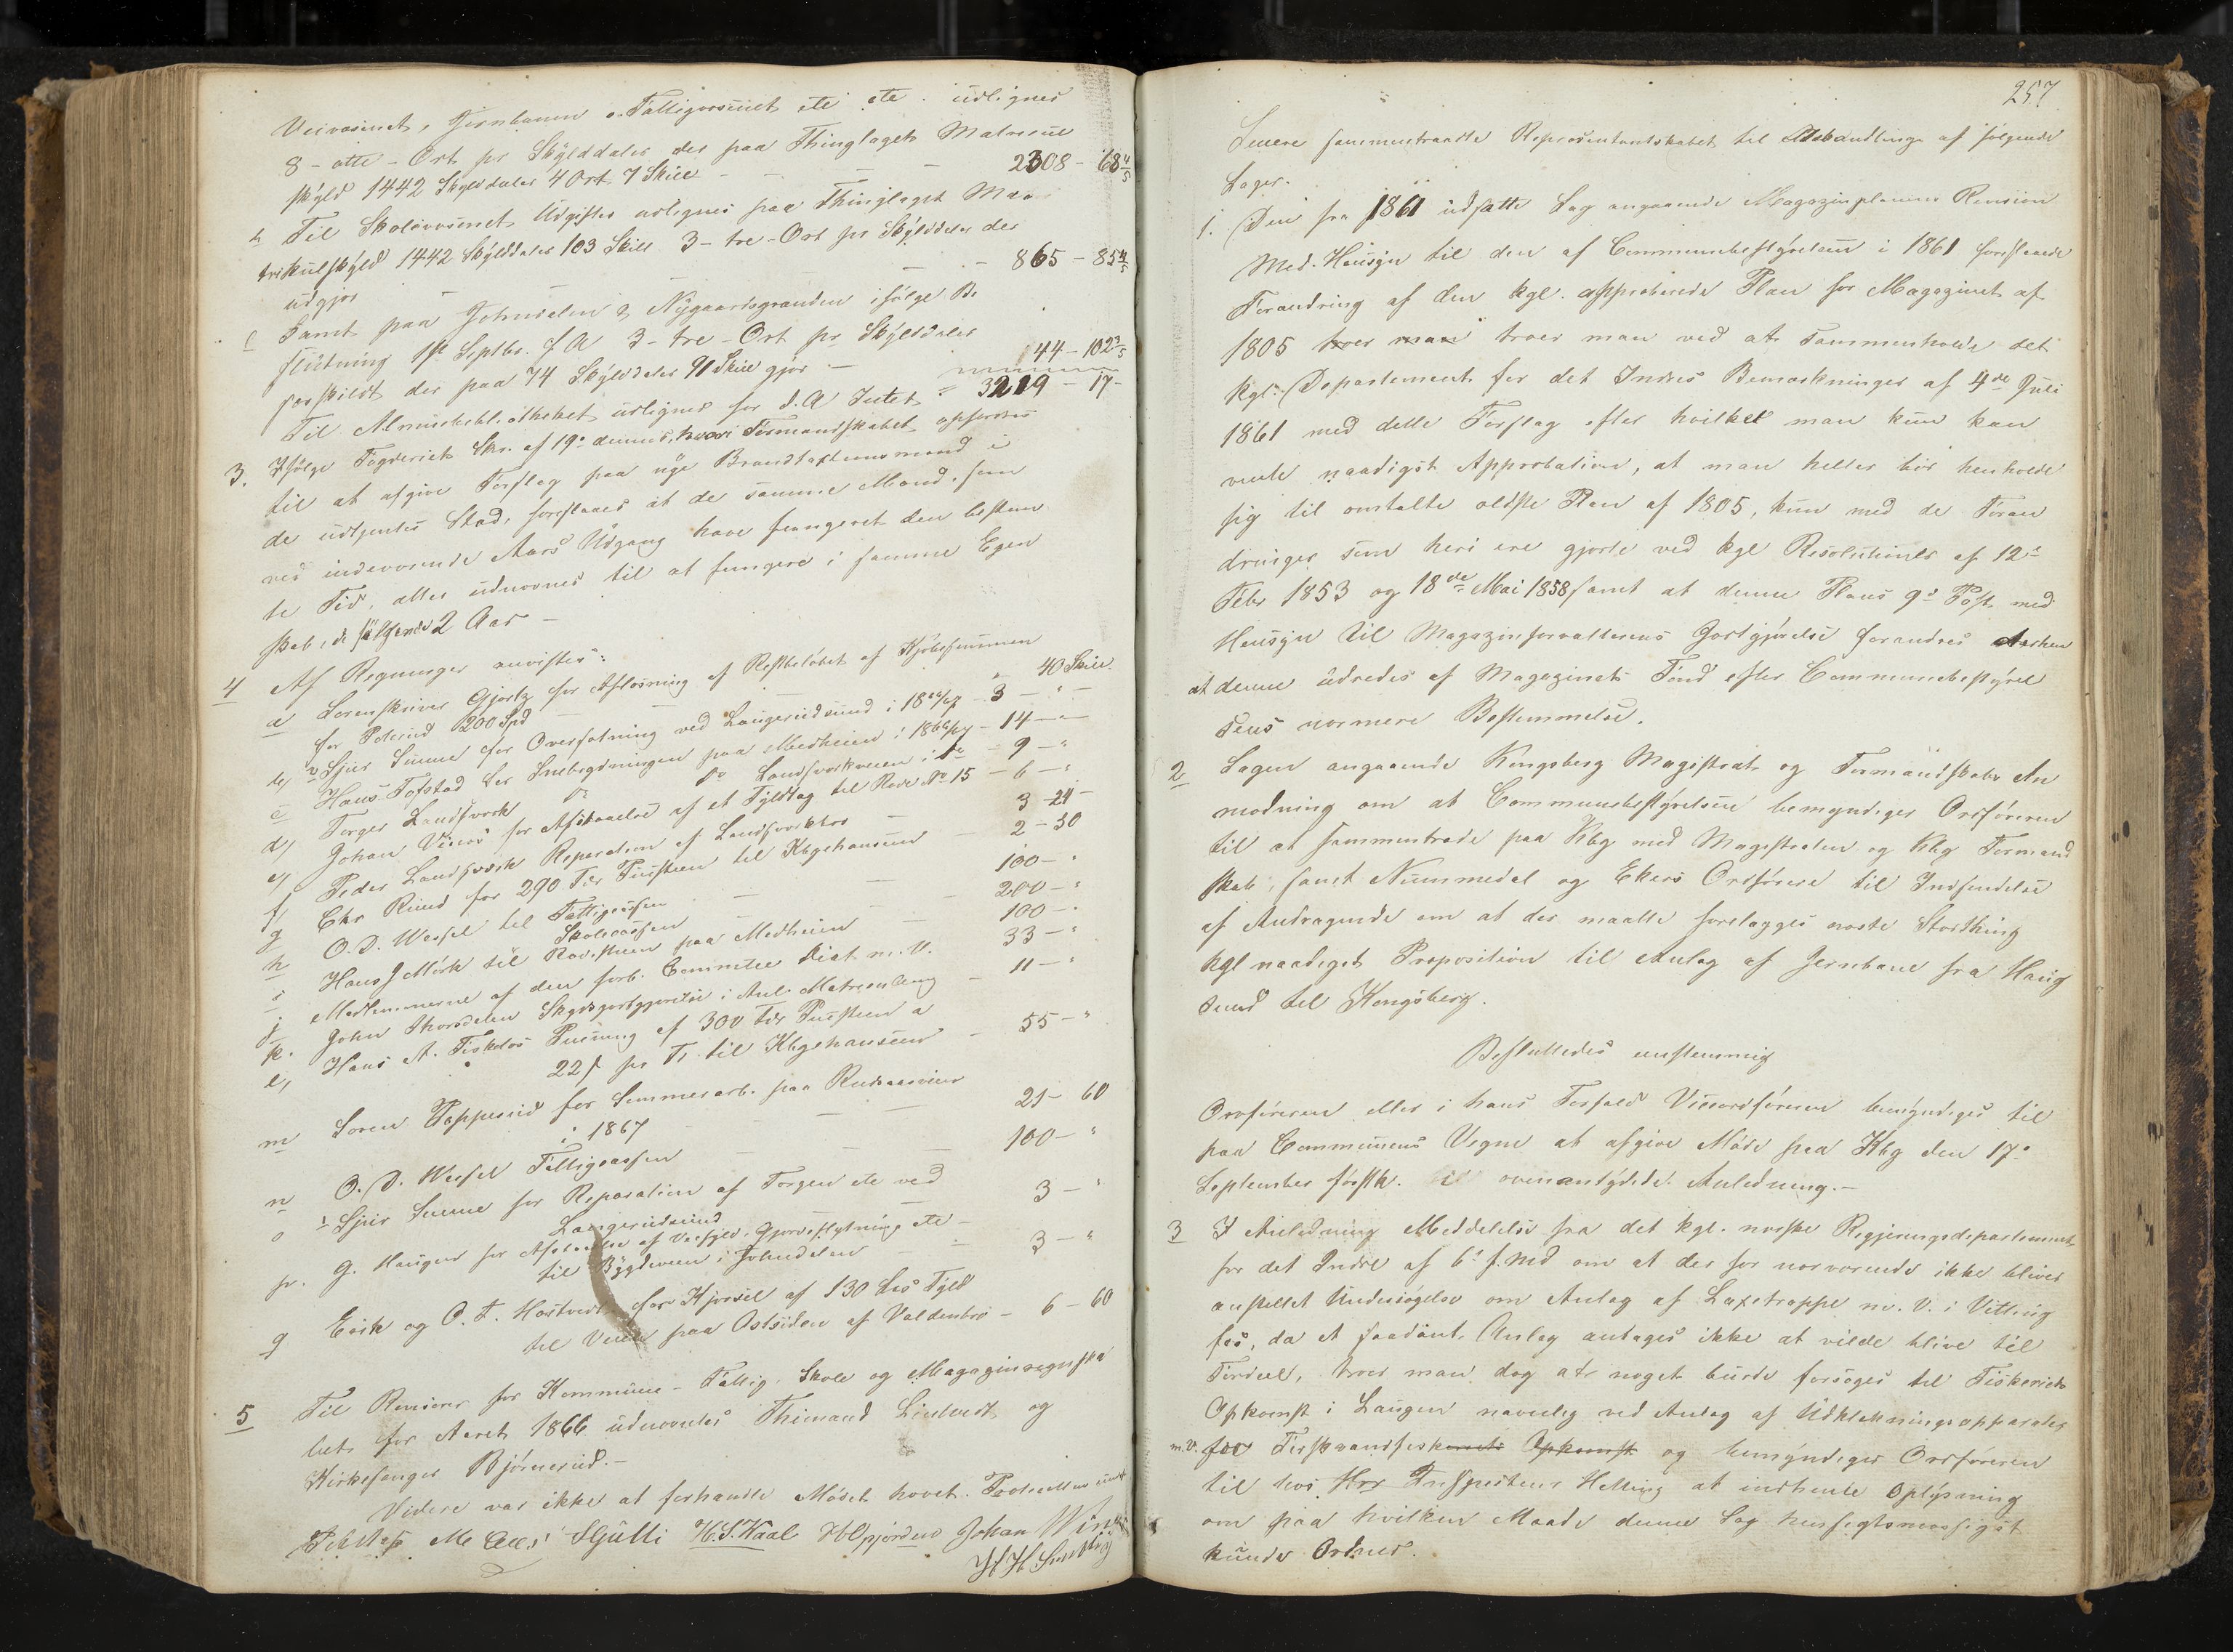 Veivæsenet, Jernbanen o. Fattigvæsenet etc etc. udlignes
8 - otte - Ort pr Skylddaler der paa Thinglagets Matricul
skyld 1442 Skylddaler 4 Ort 7 Skill - - - 2308 - 68 4/5
b Til Skolevæsenet Udgifter udlignes paa Thinglagets Ma
trikulskyld 1442 Skylddaler 103 Skill 3 - tre - Ort pr Skylddaler der
udgjør - - - 865 - 85 4/5
c Samt paa Jondalen & Nygaardsgrænden ifølge Be
slutning 1ste Septbr. f A 3 - tre - Ort pr Skylddaler
særskildt der paa 74 Skylddaler 91 Skill gjør - 44 - 102 2/5
Til Almuebibliotheket udlignes for d. A Intet = 3219 - 17 -
3. Ifølge Fogderiets Skr. af 19de dennes, hvori Formandskabet opfordres
til at afgive Forslag paa nye Brandtaxtionsmænd i
de udtjentes Sted, foreslaaes at de samme Mænd, som
ved indeværende Aars Udgang have fungeret den bestem
te Tid, atter udnævnes til at fungere i samme Egen
skab, de følgende 2 Aar -
4 Af Regninger anvistes:
a Sorenskriver Gjørtz for Afløsning af Restbeløbet af Kjøbesummen
for Peterud 200 Spd - - " 40 Skill.
b, Sjur Sunne for Oversætning ved Laugerudsund i 1866/67 - 3 - " -
c Hans Tofstad for Snebrydningen paa Medheien i 1866/67 - 14 - " -
d, Torger Landsverk Do Do Landsverkveien i Do - 9 - "
e, Johan Visnes for Afstaaelse af et Fyldtag til Rode No 15 - 6 - "
f, Peder Landsverk Reparation af Landsverkbro - 3 - 24 -
g Chr Ruud for 290 Tdr Puksten til Kbgshaugsund - 2 - 30
h O. D. Wessel til Fattigcassen - - 100 - "
Skolecassen - - 200 - "
i Hans J Mörk til Rodestuen paa Medheien - 100 - "
j. Medlemmerne af den forb. Committee Diæt m. V. - 33 - "
k. John Skorsdalen Skydsgodtgjørelse i Anl. Matrculeng - 11 - "
l, Hans A. Fiskeløs Pukning af 300 Tdr Puksten a
22 ß pr Td til Kbgshaugsund - 55 - "
m Søren Hoppestad for Sommerarb. paa Rudsaasveien
i 1867 - - 21 - 60
n O. D. Wessel Fattigcassen - - 100 - "
o Sjur Sunne for Reparation af Fergen etc ved
Laugerudsund - 3 - "
p. G. Haugene for Afstaaelse af Veifyld, Gjerdeflytning etc -
til Bygdeveien i Jondalen - - 3 - "
q Erik og O. T. Hostvedt for Kjørsel af 130 Læs Fyld
til Veien paa Østsiden af Valdenbro - 6 - 60
5 Til Revisorer for Kommune - Fattig, Skole og Magazinregnska
bet for Aaret 1866 udnævntes Thimand Lindvedt og
Kirkesanger Bjørnerud. -
Videre var ikke at forhandle Mødet hævet. Protocollen underst
H.S. Kaal Johan
257
Senere sammentraadte Repræsentantskabet til Behandling af følgende
Sager.
1. Den fra 1861 udsatte Sag angaaende Magazinplanens Revision
Med Hensyn til den af Communebestyrelsen i 1861 foreslaaede
Forandring af den kgl. approberede Plan for Magazinet af
1805 troer man troer man ved at sammenholde det
kgl. Departement for det Indres Bemærkninger af 4de Juli
1861 med dette Forslag efter hvilket man kun kan
vente naadigst Approbation, at man heller bør henholde
sig til omtalte ældste Plan af 1805, kun med de Foran
dringer som heri ere gjorte ved kgl Resolutioner af 12te
Febr 1853 og 18de Mai 1858 samt at denne Plans 9de Post med
Hensyn til Magazinforvalterens Godtgjørelse forandres derhen
at denne udredes af Magazinets Fond efter Communebestyrel
sens nærmere Bestemmelse.
2 Sagen angaaende Kongsberg Magistrat og Formandskabs An
modning om at Communebestyrelsen bemyndiger Ordføreren
til at sammentræde paa Kbg med Magistraten og Kbg Formand
skab, samt Nummedal og Ekers Ordførere til Indsendelse
af Andragende om at der maatte forelægges næste Storthing
kgl naadigst Proposition til Anlæg af Jernbane fra Haug
sund til Kongsberg.
Besluttedes enstemmig
Ordføreren eller i hans Forfald Viceordføreren bemyndiges til
paa Communens Vegne at afgive Møde paa Kbg den 17de
September førstk. til ovenantydede Anledning. -
3 I Anledning Meddelelse fra det kgl. norske Regjeringsdepartement
for det Indre af 6te f. Md om at der for nærværende ikke bliver
anstillet Undersøgelse om Anlæg af Laxetrappe m. V. i Vitting
fos, da et saadant Anlæg antages ikke at ville blive til
Fordeel, troer man dog at noget burde forsøges til Fiskeriets
Opkomst i Laugen navnlig ved Anlæg af Udklækningsapparater
m.v. for Ferskvandsfiskeriets Opkomst og bemyndiges Ordføreren
til hos Hr Inspecteur Hetting at indhente Oplysning
om paa hvilken Maade denne Sag hensigtsmæssigst
kunde Ordnes.